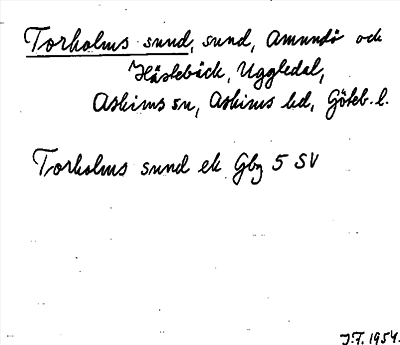 Torholms sund, sund, Amundö och
Hästebäck, Uggledal,
Askims sn, Askims hd, Göteb. l.
Torholms sund ek Gbg 5 SV
J.F. 1954.